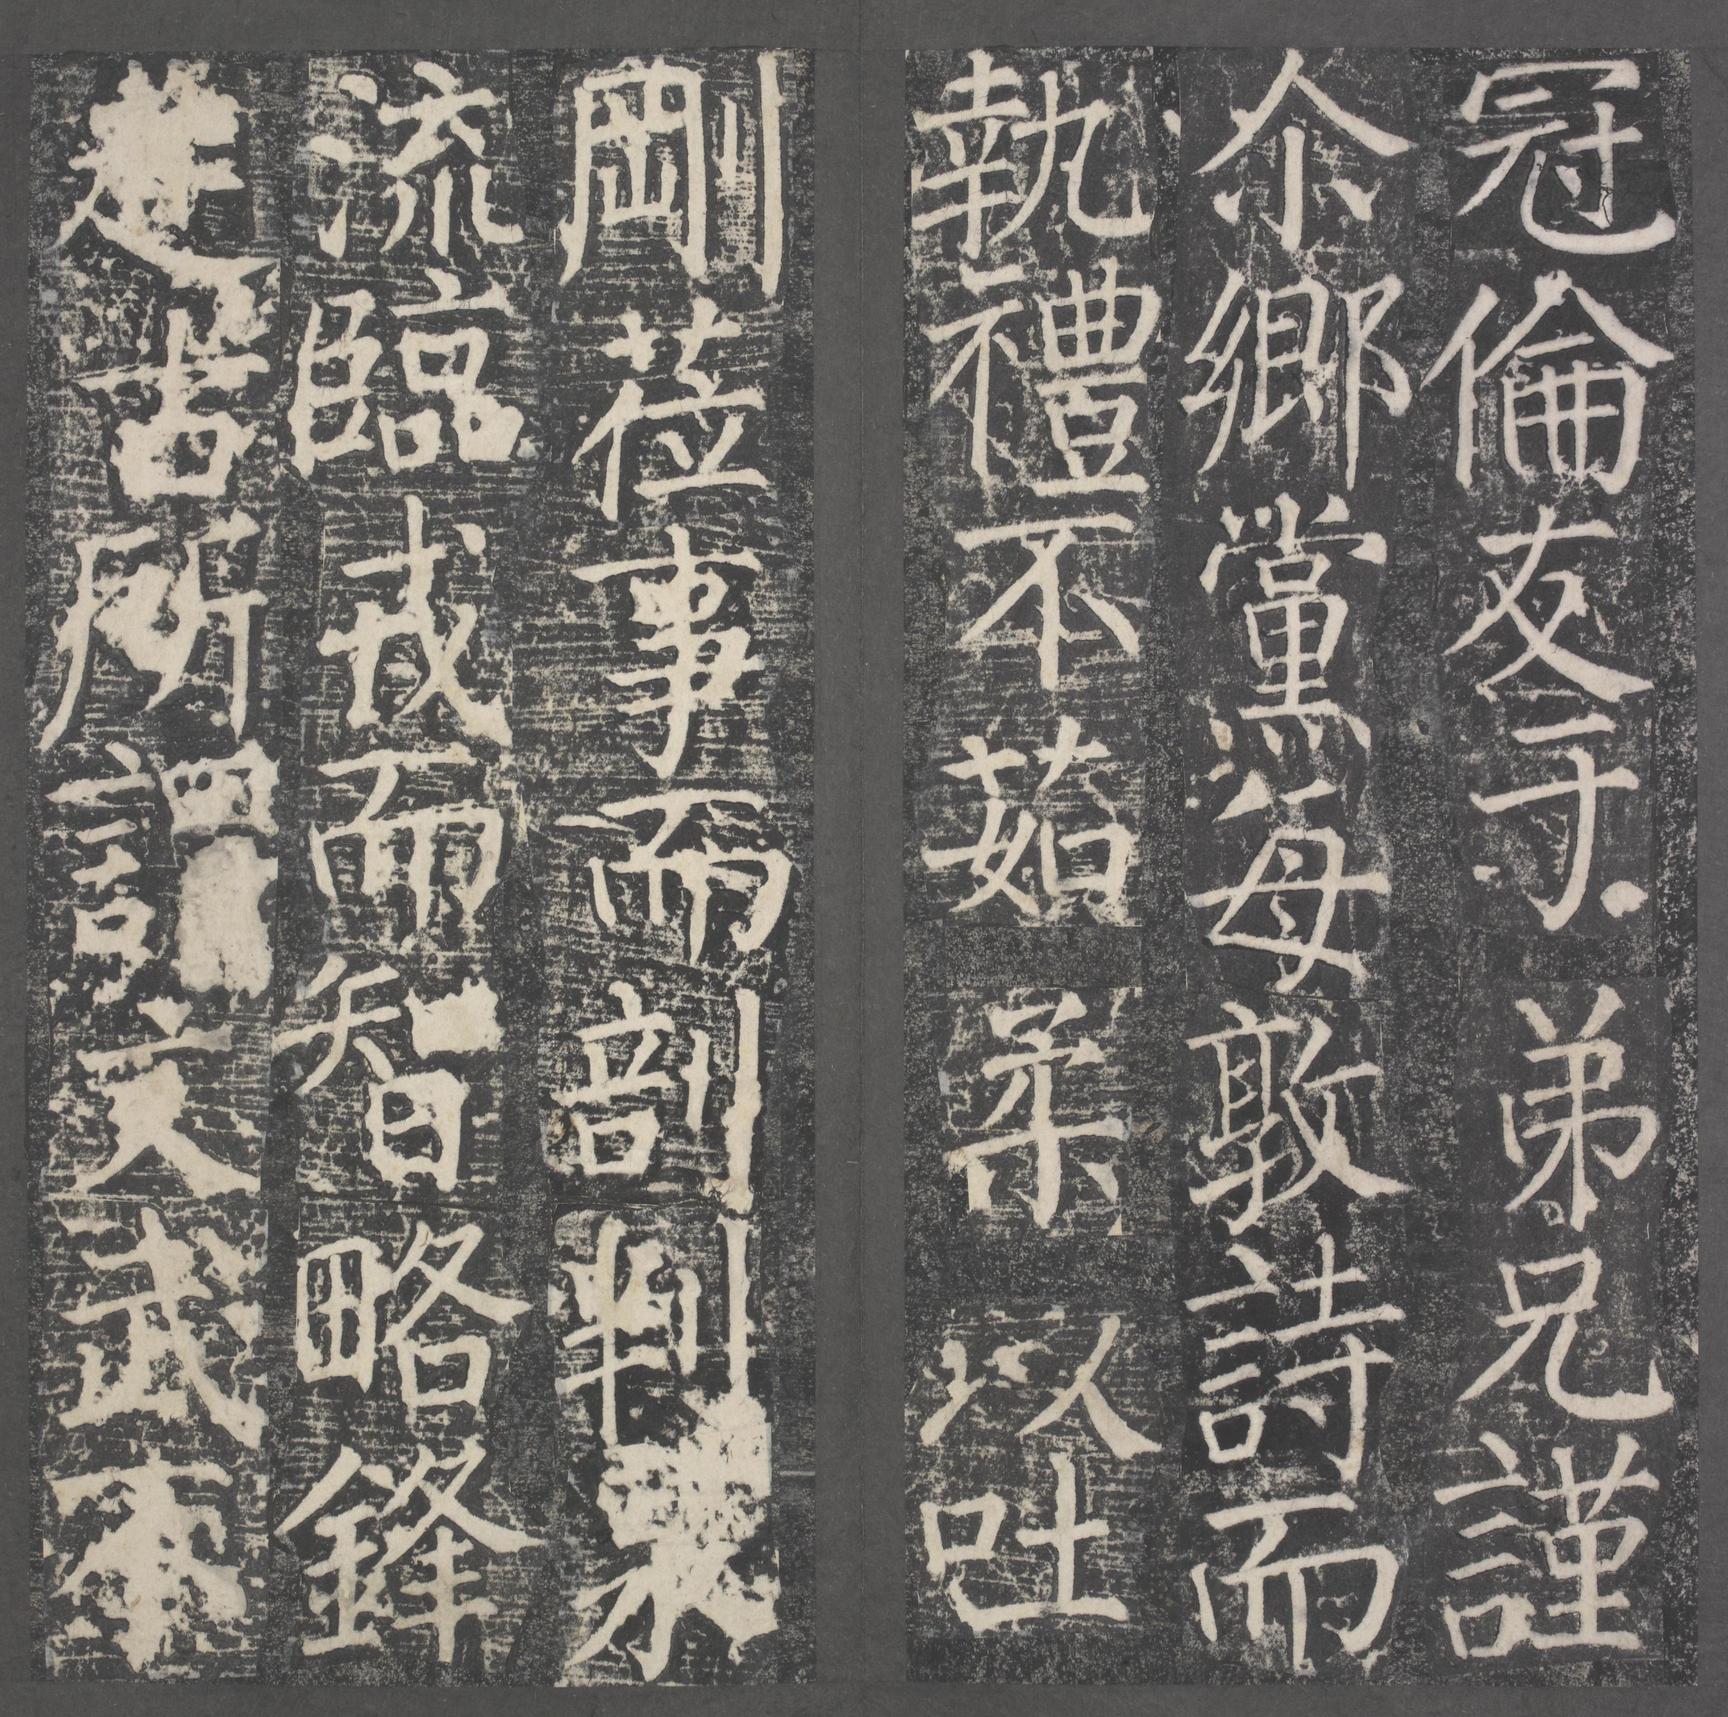 冠倫友于弟兄謹
尒鄉黨每敦詩而
執禮不茹柔以吐
剛莅事而剖判
流臨戎而智略鋒
起古所謂文武